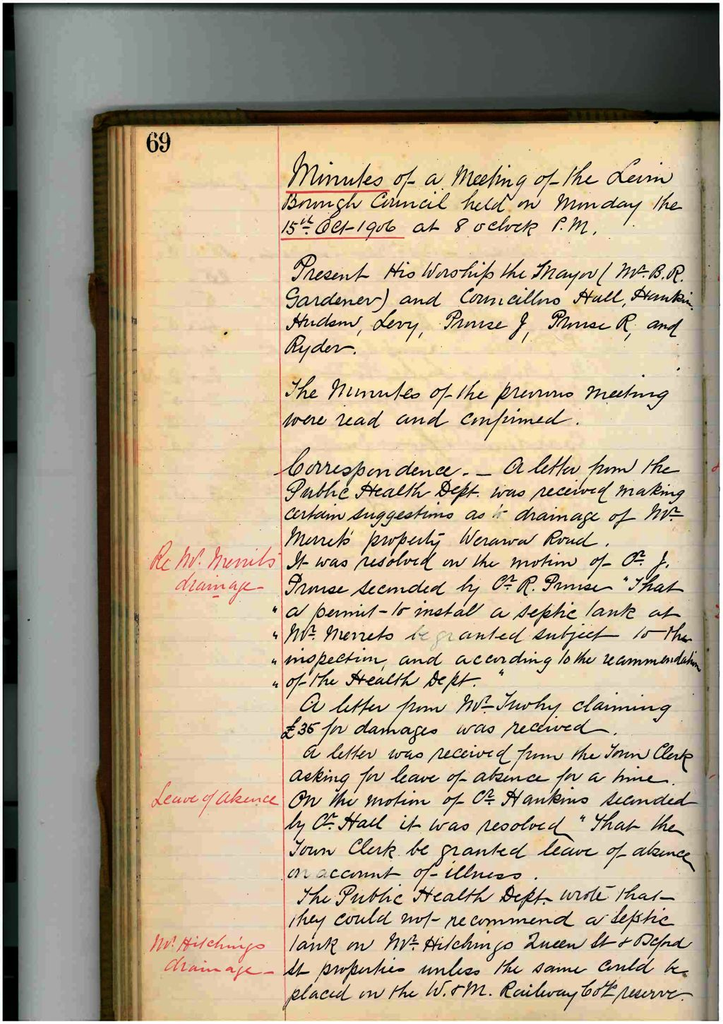 69
Minutes of a Meeting of the Levin
Borough Council held on Monday the
15th Oct 1906 at 8 oclock P.M.
Present His Worship the Mayor (Mr B.R.
Gardener) and Councillors Hall, Hankin
Hudson, Levy, Prouse J, Prouse R, and
Ryder.
The Minutes of the previous meeting
were read and confirmed.
Correspondence. — A letter from the
Public Health Dept was received making
certain suggestions as to drainage of Mr
Merrets property Weraroa Road.
Re Mr. Merrits drainage
It was resolved on the motion of Cr J.
Prouse seconded by Cr R. Prouse "That
" a permit to instal a septic tank at
" Mr Merrets be granted subject to the
" inspection, and according to the recommendation
" of the Health Dept. "
A letter from Mr claiming
£35 for damages was received.
A letter was received from the Town Clerk
asking for leave of absence for a time.
Leave of Absence
On the motion of Cr Hankins seconded
by Cr Hall it was resolved "That the
Town Clerk be granted leave of absence
on account of illness.
The Public Health Dept wrote that
they could not recommend a Septic
Mr. Hitchings drainage
tank on Mr Hitchings Queen St & Oxford
St properties unless the same could be
placed on the W. & M. Railway Cos reserve.